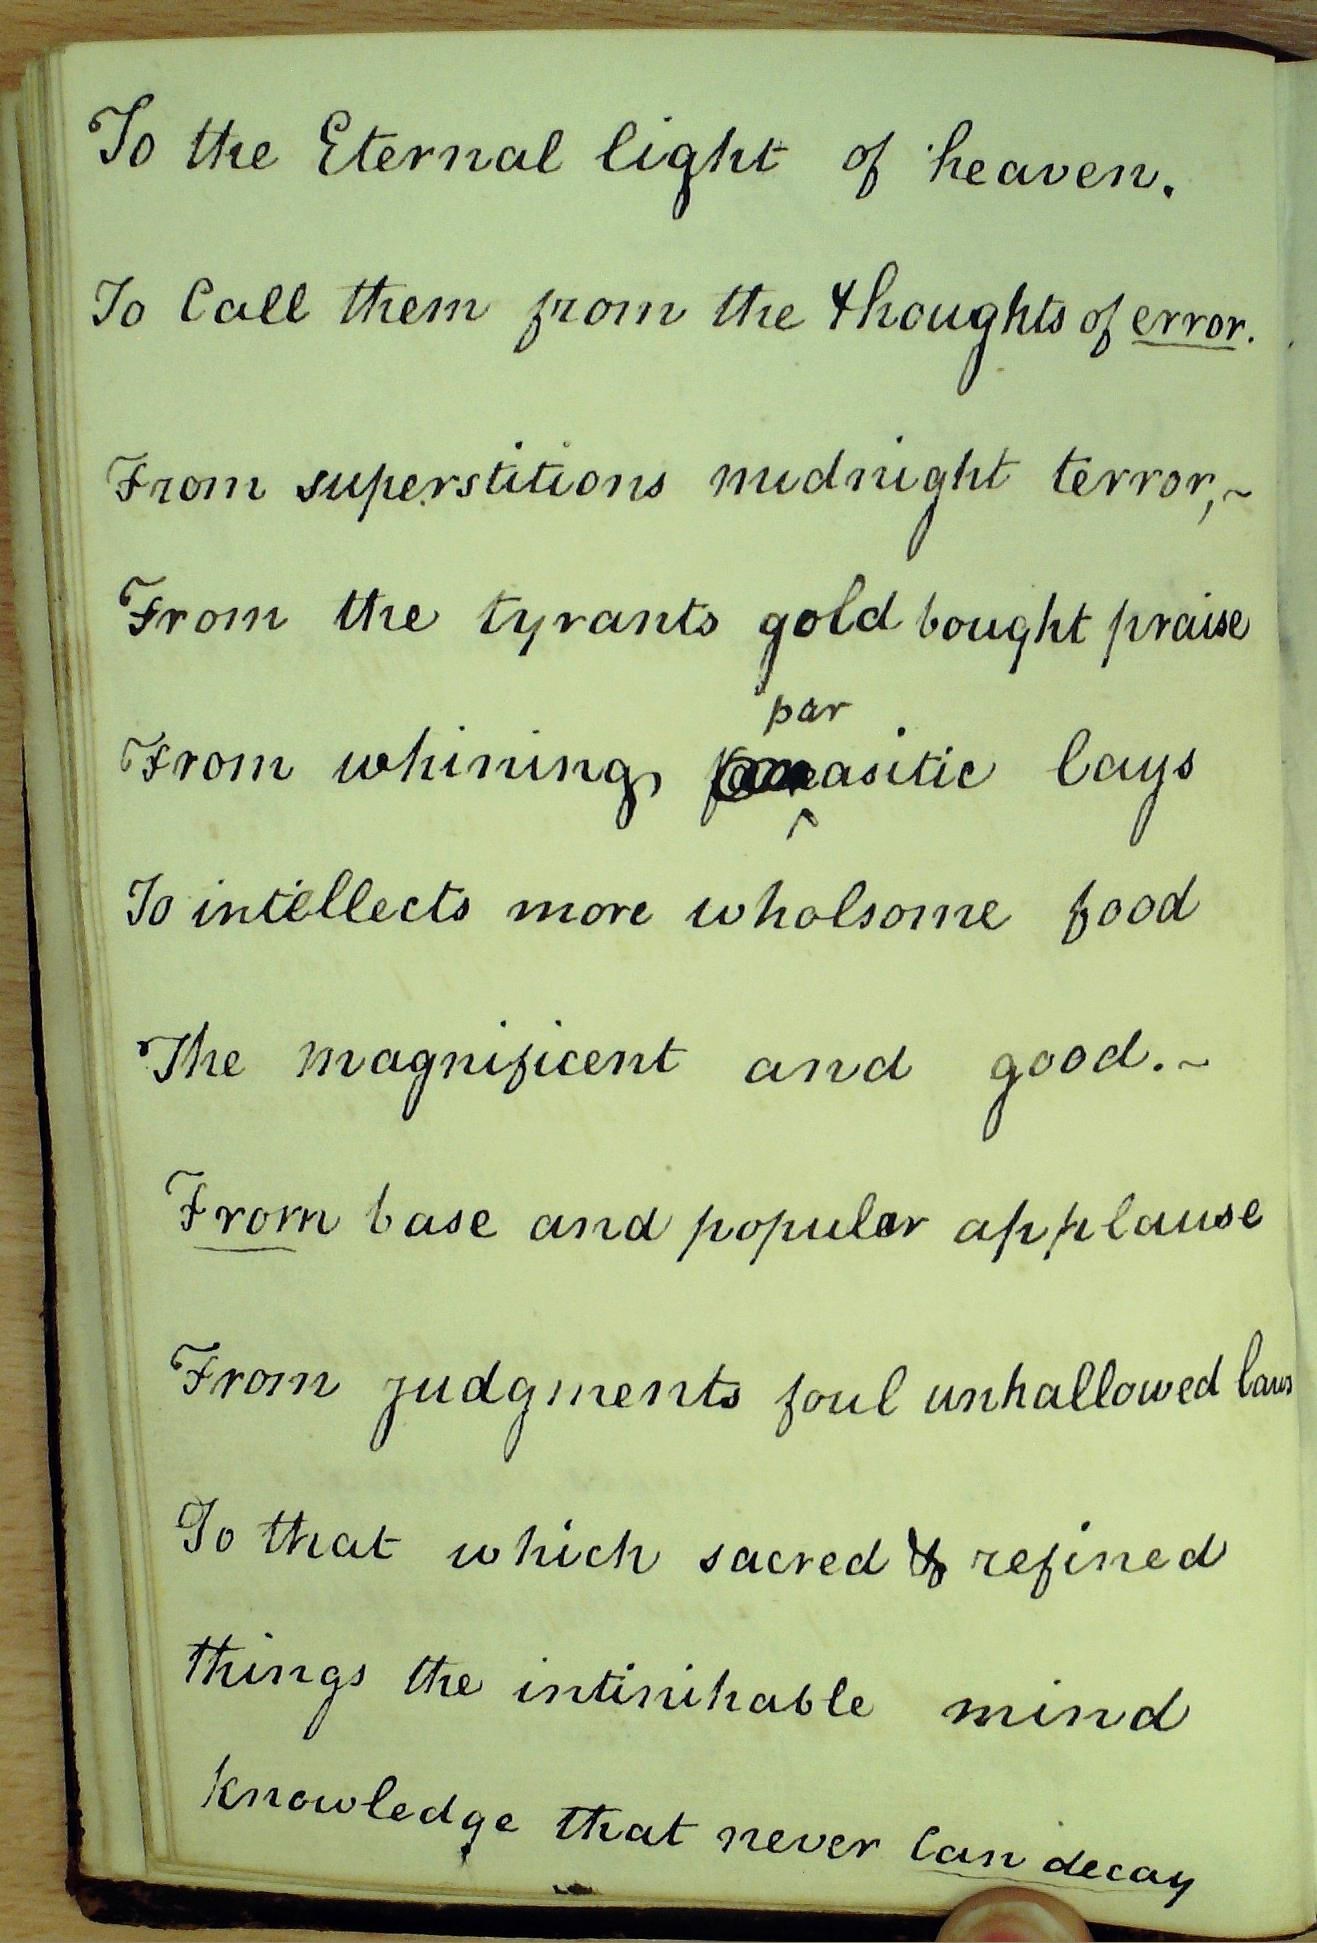 To the Eternal light of heaven.
To Call them from the thoughts of error.
From superstitions midnight terror,~
From the tyrants gold bought praise
par
From whining, asitic lays
To intellects more wholsome food
The magnificent and good.~
From base and popular applause
From judgments foul unhallowed laws
To that which sacred & refined
things the intinihable mind
Knowledge that never Can decay